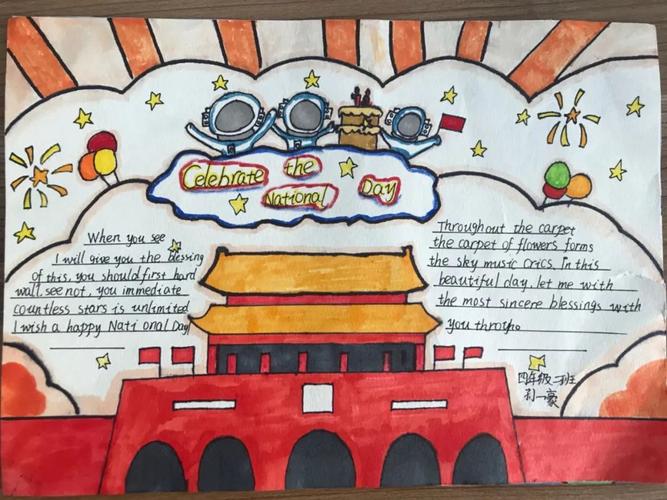 Celebrate the
National Day
When you see
I will give you the blessing
of this, you should first hard
wall, see not, you immediate
countless stars is unlimited
I wish a happy Nati onal Day
Throughout the carpet
the carpet of flowers forms
the sky music crics. In this
beautiful day, let me with
the most sincere blessings with
you throuho
四年级二班
刘一豪